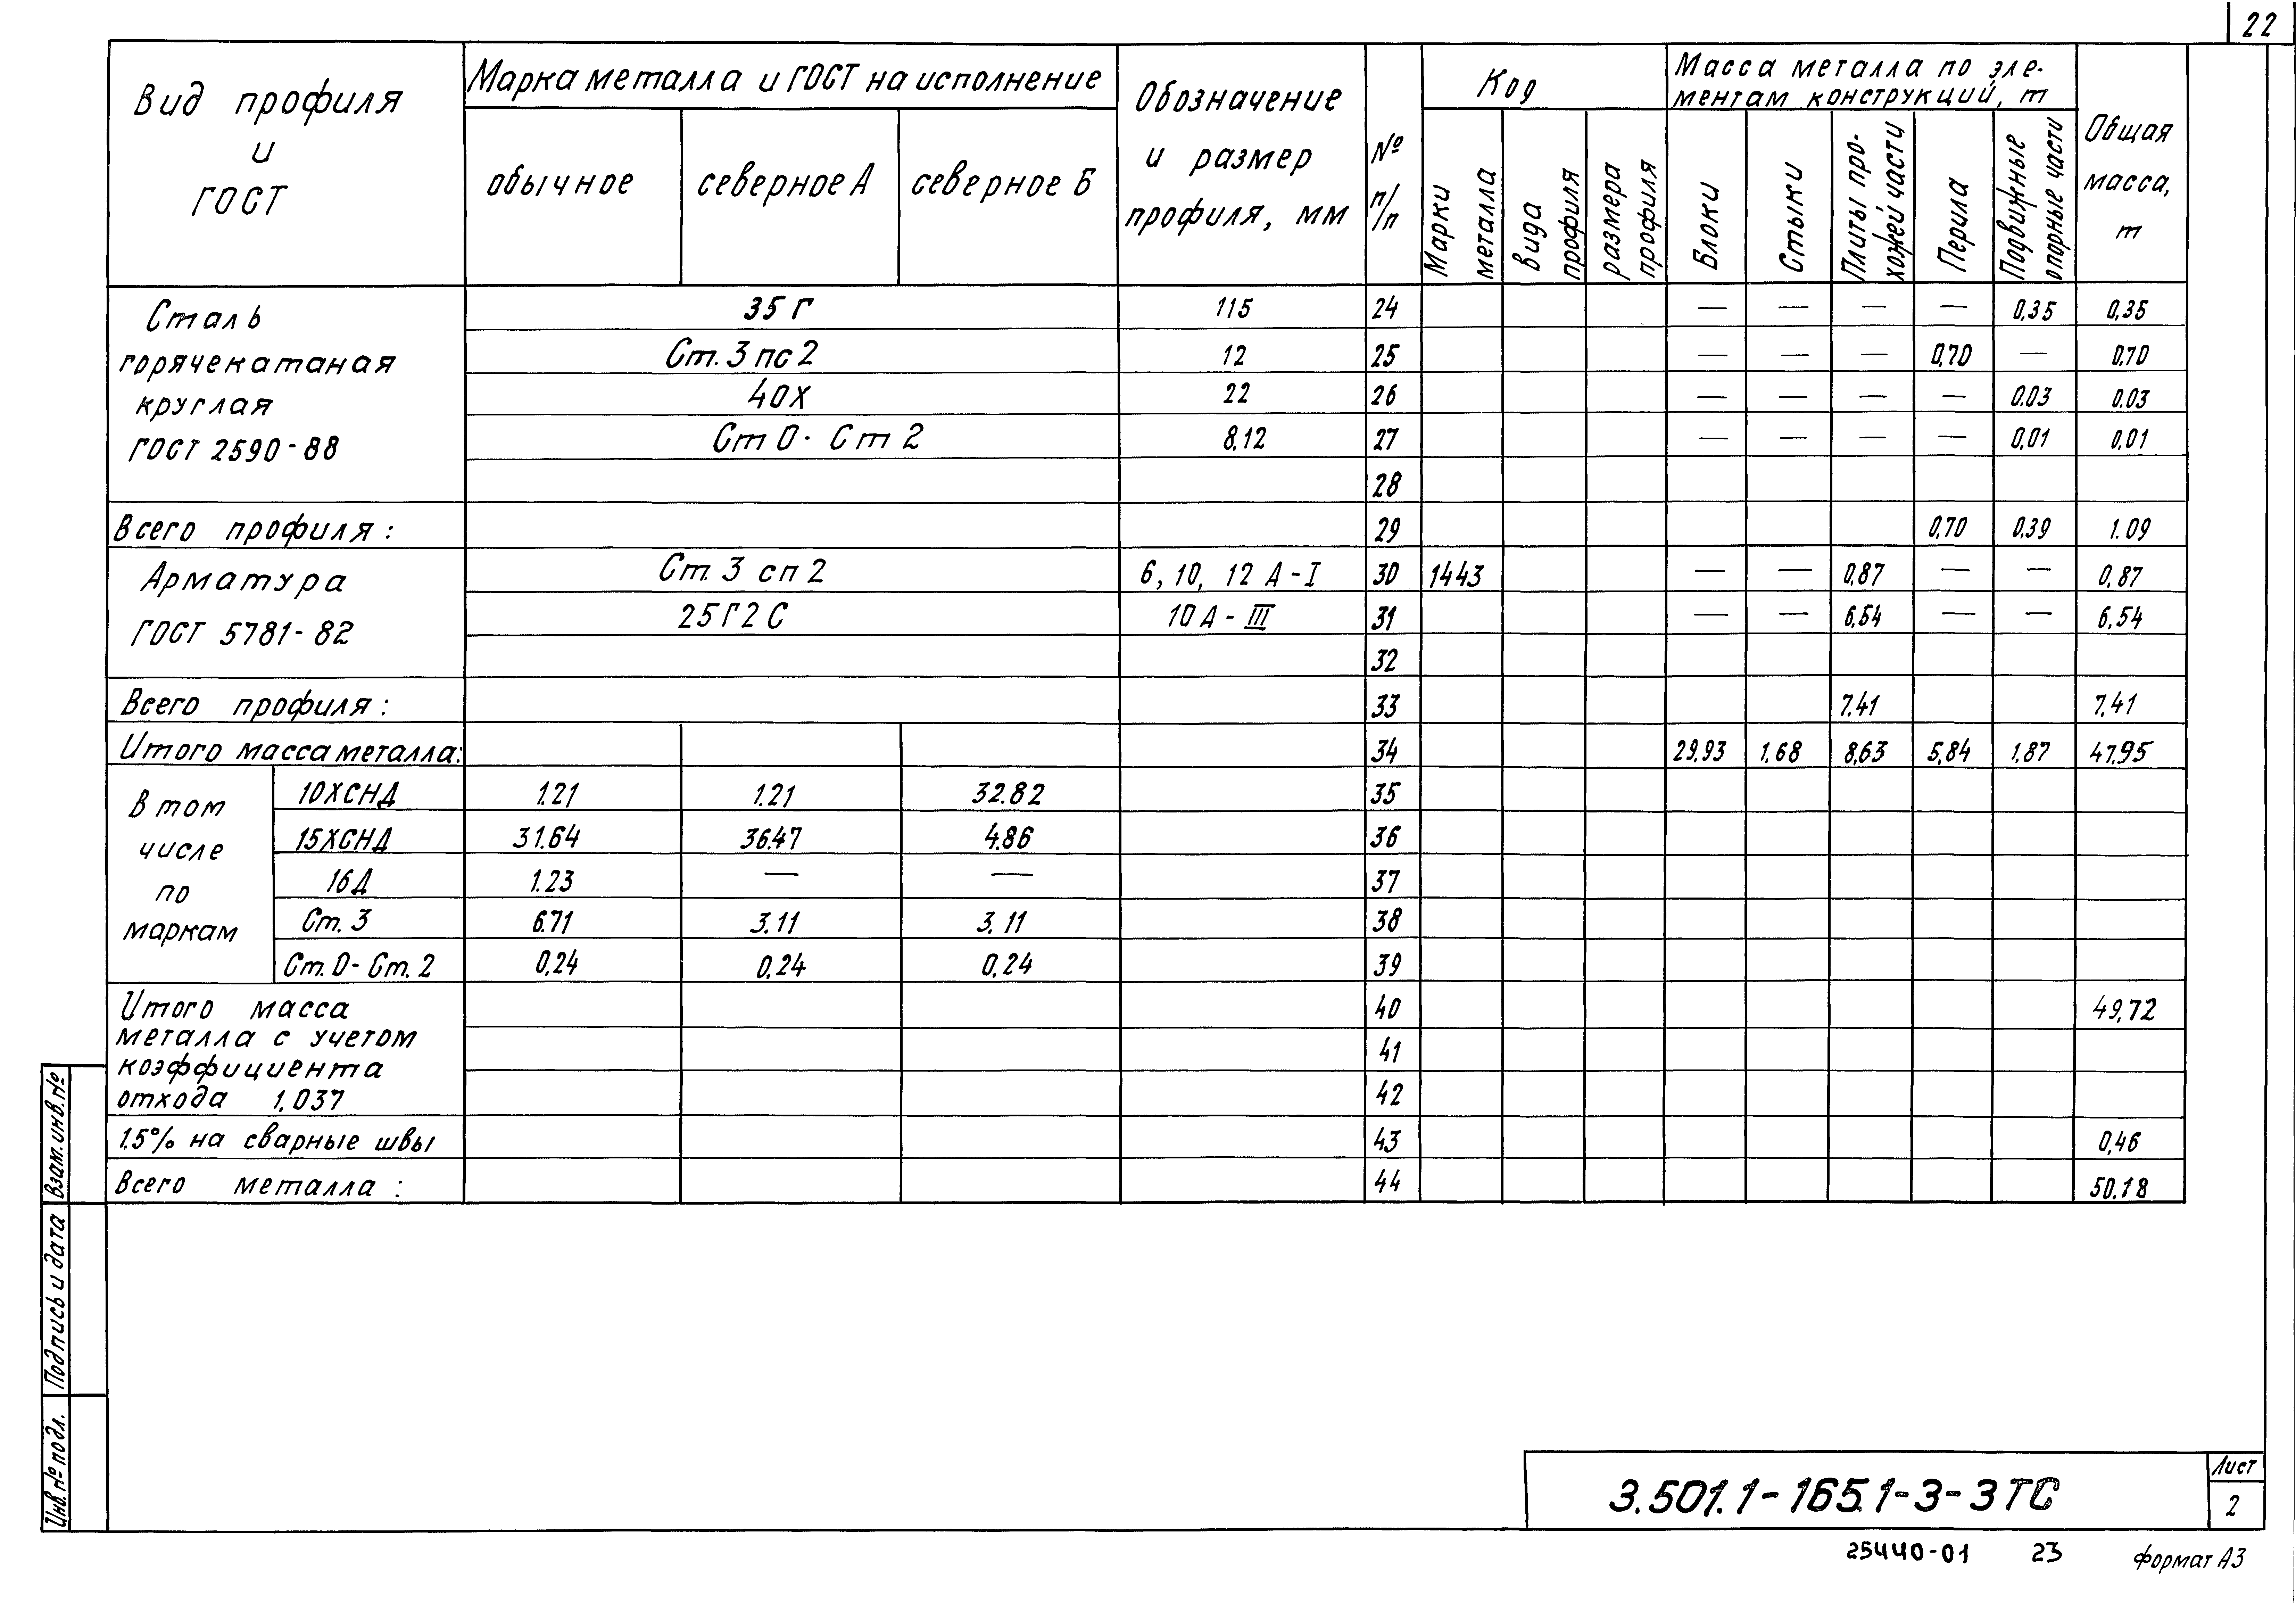 22
Вид профиля и ГОСТ
Марка металла и ГОСТ на исполнение
обычное
северное А
северное Б
Обозначение и размер профиля, мм
№ п/п
Код
Марки металла
Вида профиля
размера профиля
Масса металла по эле-
ментам конструкций, т
Блоки
Стыки
Плиты про-
хожей части
Перила
Подвижные опорные части
Общая масса, т
Сталь
горячекатаная
круглая
ГОСТ 2590-88
35Г 115 24 — — — — 0,35 0,35
Ст. 3 пс 2 12 25 — — — 0,70 — 0,70
40Х 22 26 — — — — 0.03 0.03
Ст 0 - Ст 2 8,12 27 — — — — 0,01 0,01
28
Всего профиля: 29 0,70 0,39 1.09
Арматура
ГОСТ 5781-82
Ст. 3 сп 2 6, 10, 12 А-I 30 1443 — — 0,87 — — 0,87
25Г2С 10 А-III 31 — — 6,54 — — 6,54
32
Всего профиля: 33 7.41 7,41
Итого масса металла: 34 29.93 1.68 8,63 5,84 1.87 47.95
В том
числе
по
маркам
10ХСНД 1.21 1.21 32.82 35
15ХСНД 31.64 36.47 4.86 36
16Д 1.23 — — 37
Ст. 3 6.71 3.11 3.11 38
Ст. 0 - Ст. 2 0,24 0,24 0,24 39
Итого масса
металла с учетом
коэффициента
отхода 1,037
40 49,72
41
42
1.5% на сварные швы 43 0,46
Всего металла: 44 50.18
Взам. инв. №
Подпись и дата
Инв. № подл.
3.501.1-165.1-3-3ТС
Лист
2
25440-01 23 формат А3